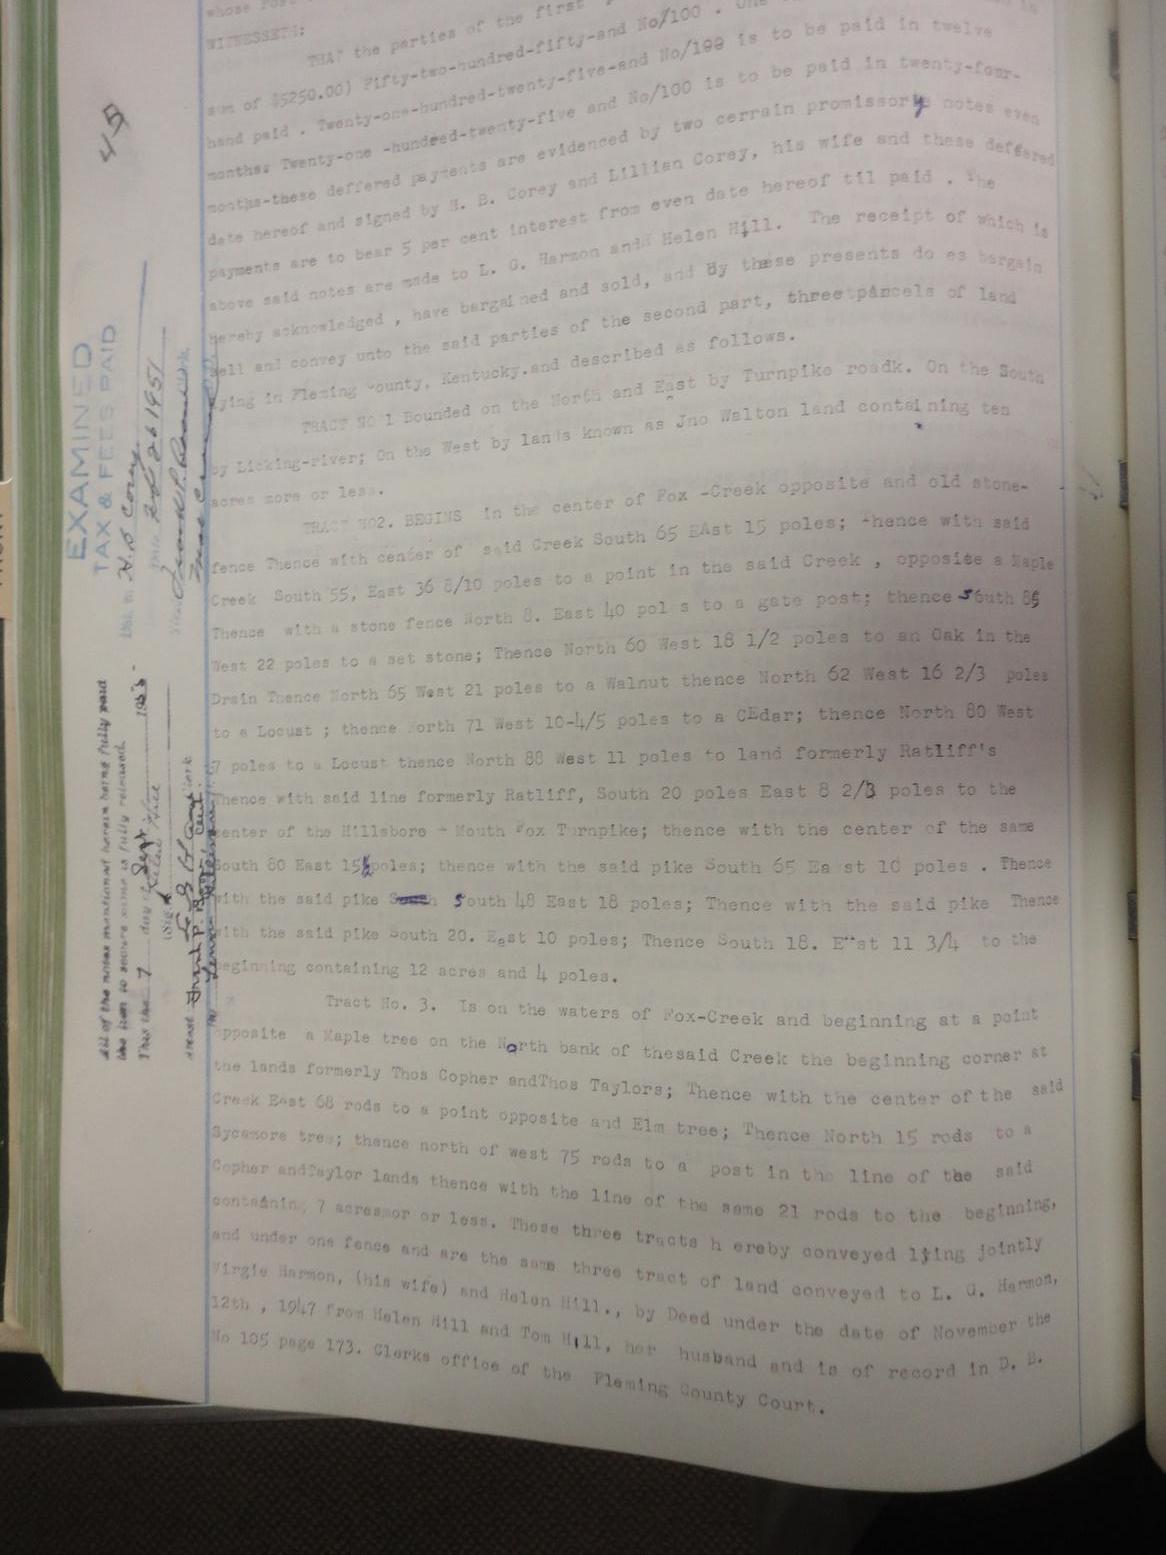 WITNESSETH:
THAT the parties of the first
sum of $5250.00) Fifty-two-hundred-fifty-and No/100 . One
hand paid . Twenty-one-hundred-twenty-five-and No/100 is to be paid in twelve
months. Twenty-one -hundred-twenty-five and No/100 is to be paid in twenty-four-
months-these deffered payments are evidenced by two cerrain promissory notes even
date hereof and signed by H. B. Corey and Lillian Corey, his wife and these deffered
payments are to bear 5 per cent interest from even date hereof til paid . The
above said notes are made to L. G. Harmon and Helen Hill. The receipt of which is
hereby acknowledged , have bargained and sold, and By these presents do es bargain
sell and convey unto the said parties of the second part, three parcels of land
lying in Fleming County, Kentucky.and described as follows.
TRACT NO 1 Bounded on the North and East by Turnpike roadk. On the South
by Licking-river; On the West by lands known as Jno Walton land containing ten
acres more or less.
TRACT NO2. BEGINS in the center of Fox -Creek opposite and old stone-
fence Thence with center of said Creek South 65 EAst 15 poles; Thence with said
Creek South 55, East 36 8/10 poles to a point in the said Creek , opposite a Maple
Thence with a stone fence North 8. East 40 pol s to a gate post; thence South 85
West 22 poles to a set stone; Thence North 60 West 18 1/2 poles to an Oak in the
Drain Thence North 65 West 21 poles to a Walnut thence North 62 West 16 2/3 poles
to a Locust ; thence North 71 West 10-4/5 poles to a CEdar; thence North 80 West
7 poles to a Locust thence North 88 West 11 poles to land formerly Ratliff's
Thence with said line formerly Ratliff, South 20 poles East 8 2/3 poles to the
center of the Hillsboro - Mouth Fox Turnpike; thence with the center of the same
South 80 East 15 poles; thence with the said pike South 65 Ea st 10 poles . Thence
with the said pike South 48 East 18 poles; Thence with the said pike Thence
with the said pike South 20. East 10 poles; Thence South 18. East 11 3/4 to the
beginning containing 12 acres and 4 poles.
Tract No. 3. Is on the waters of Fox-Creek and beginning at a point
opposite a Maple tree on the North bank of thesaid Creek the beginning corner at
the lands formerly Thos Copher andThos Taylors; Thence with the center of the said
Creek East 68 rods to a point opposite and Elm tree; Thence North 15 rods to a
Sycamore tree; thence north of west 75 rods to a post in the line of the said
Copher andTaylor lands thence with the line of the same 21 rods to the beginning,
containing 7 acresmor or less. These three tracts h ereby conveyed lying jointly
and under one fence and are the same three tract of land conveyed to L. G. Harmon,
Virgie Harmon, (his wife) and Helen Hill., by Deed under the date of November the
12th , 1947 from Helen Hill and Tom Hill, her husband and is of record in D. B.
No 105 page 173. Clerks office of the Fleming County Court.
EXAMINED
TAX & FEES PAID
H. B Corey
All of the notes mentioned herein being fully paid
the lien to secure same is fully released.
This the 7 day of Sept